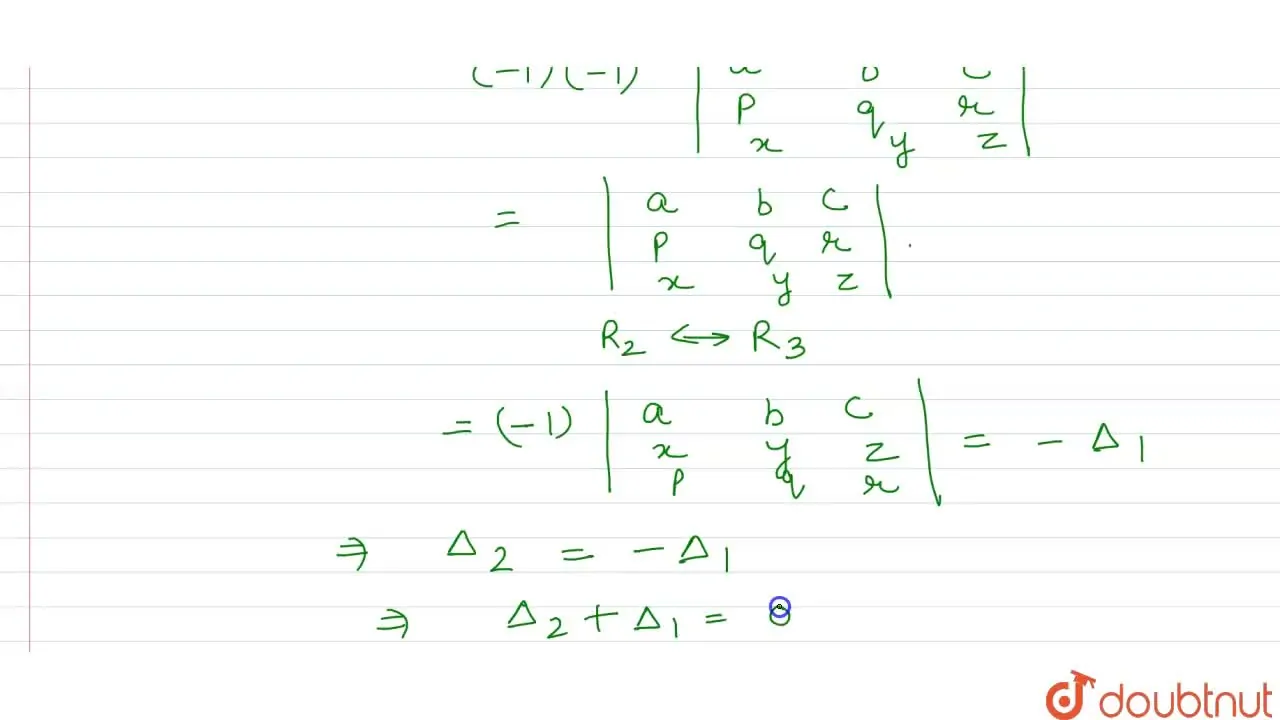 (-1)(-1) | a b c |
| p q r |
| x y z |
= | a b c |
| p q r |
| x y z |
R2 ↔ R3
= (-1) | a b c | = - Δ1
| x y z |
| p q r |
⇒ Δ2 = - Δ1
⇒ Δ2 + Δ1 = 0
doubtnut